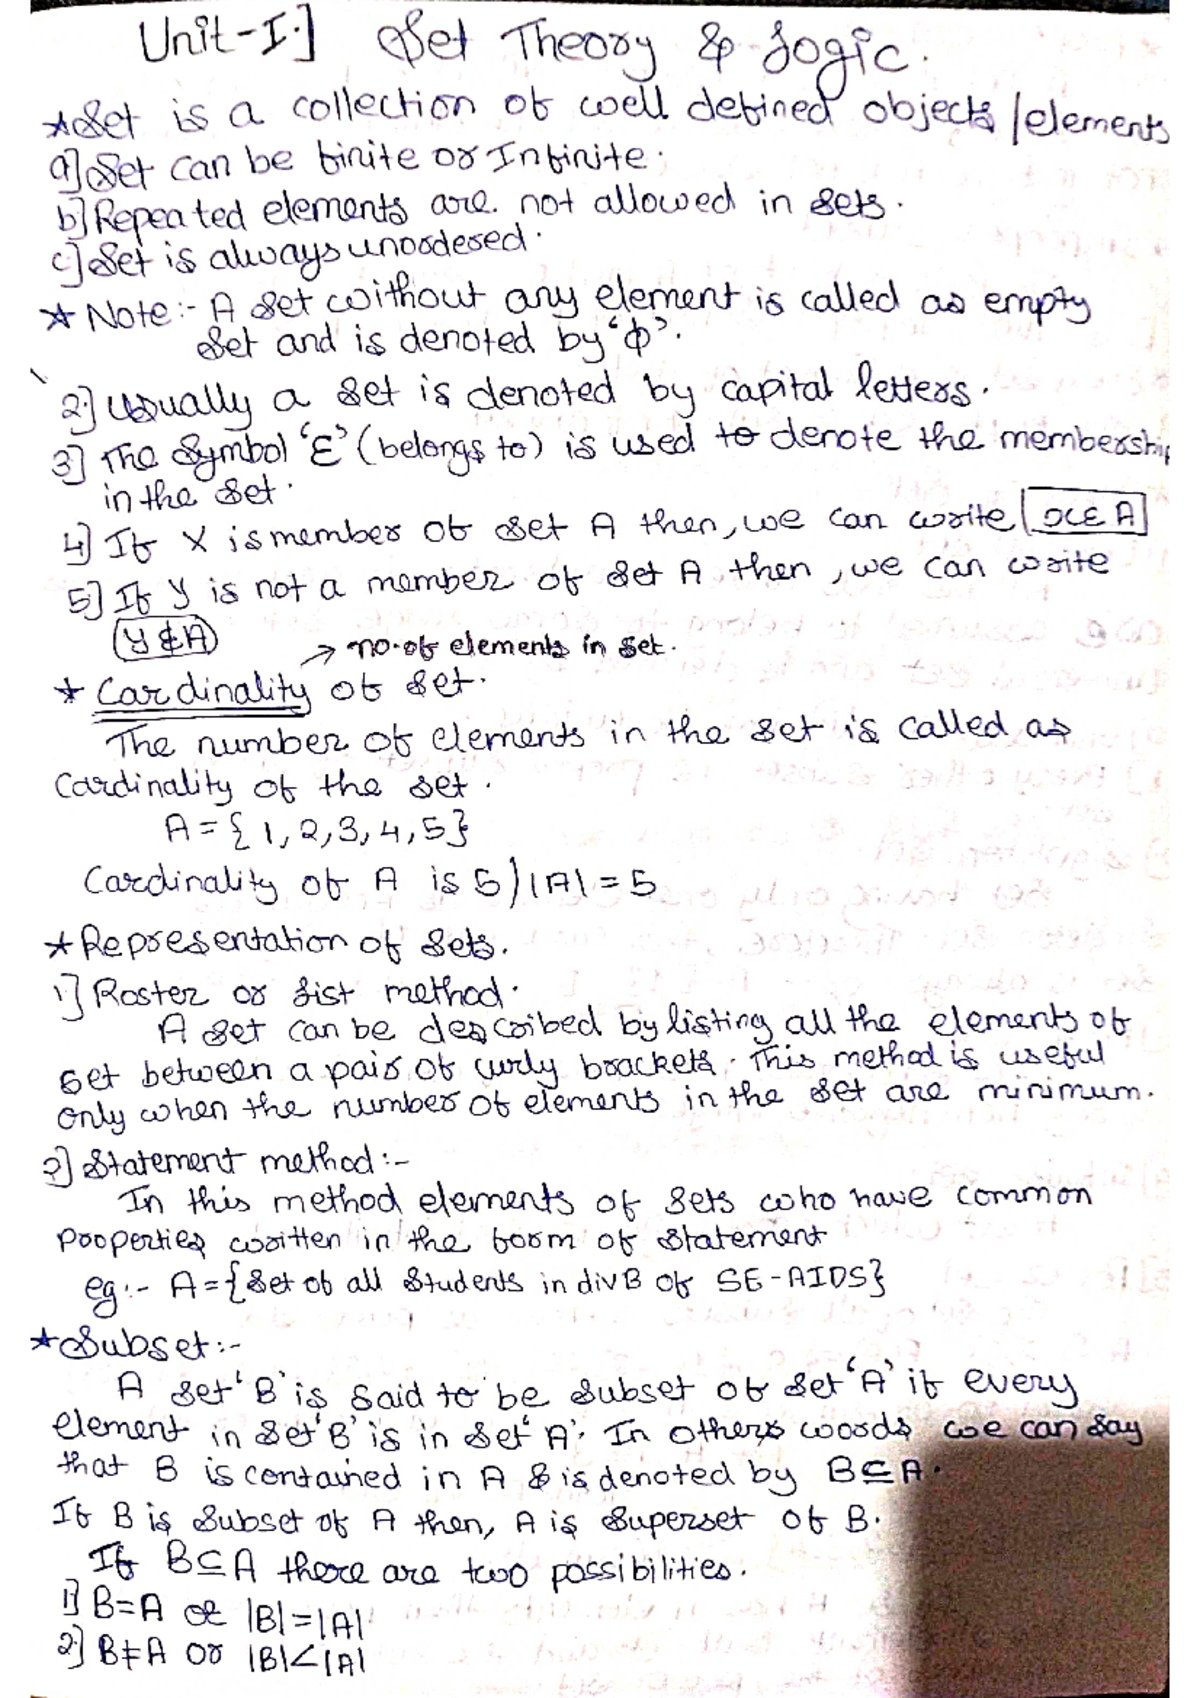 Unit-I.] Set Theory & Logic.
*Set is a collection of well defined objects/elements
a] Set can be finite or Infinite.
b] Repeated elements are not allowed in sets.
c] Set is always unordered.
* Note:- A set without any element is called as empty
set and is denoted by 'ɸ'.
2.] Usually a set is denoted by capital letters.
3] The Symbol 'Ɛ' (belongs to) is used to denote the membership
in the set.
4] If X is member of set A then, we can write x∈A
5] If y is not a member of set A then, we can write
y∉A
→ no. of elements in set.
* Cardinality of set.
The number of elements in the set is called as
Cardinality of the set.
A = { 1, 2, 3, 4, 5 }
Cardinality of A is 5) |A| = 5
* Representation of Sets.
1] Roster or List method.
A set can be described by listing all the elements of
set between a pair of curly brackets. This method is useful
only when the number of elements in the set are minimum.
2] Statement method:-
In this method elements of sets who have common
properties written in the form of statement
eg:- A = {Set of all Students in div B of SE-AIDS}
* Subset:-
A set 'B' is said to be subset of set 'A' if every
element in set 'B' is in set 'A'. In others words we can say
that B is contained in A & is denoted by B⊆A.
If B is Subset of A then, A is Superset of B.
If B⊆A there are two possibilities.
1] B=A or |B|=|A|
2] B≠A or |B|<|A|